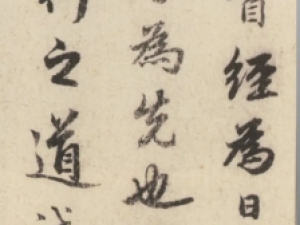 經為日
為先也
之道